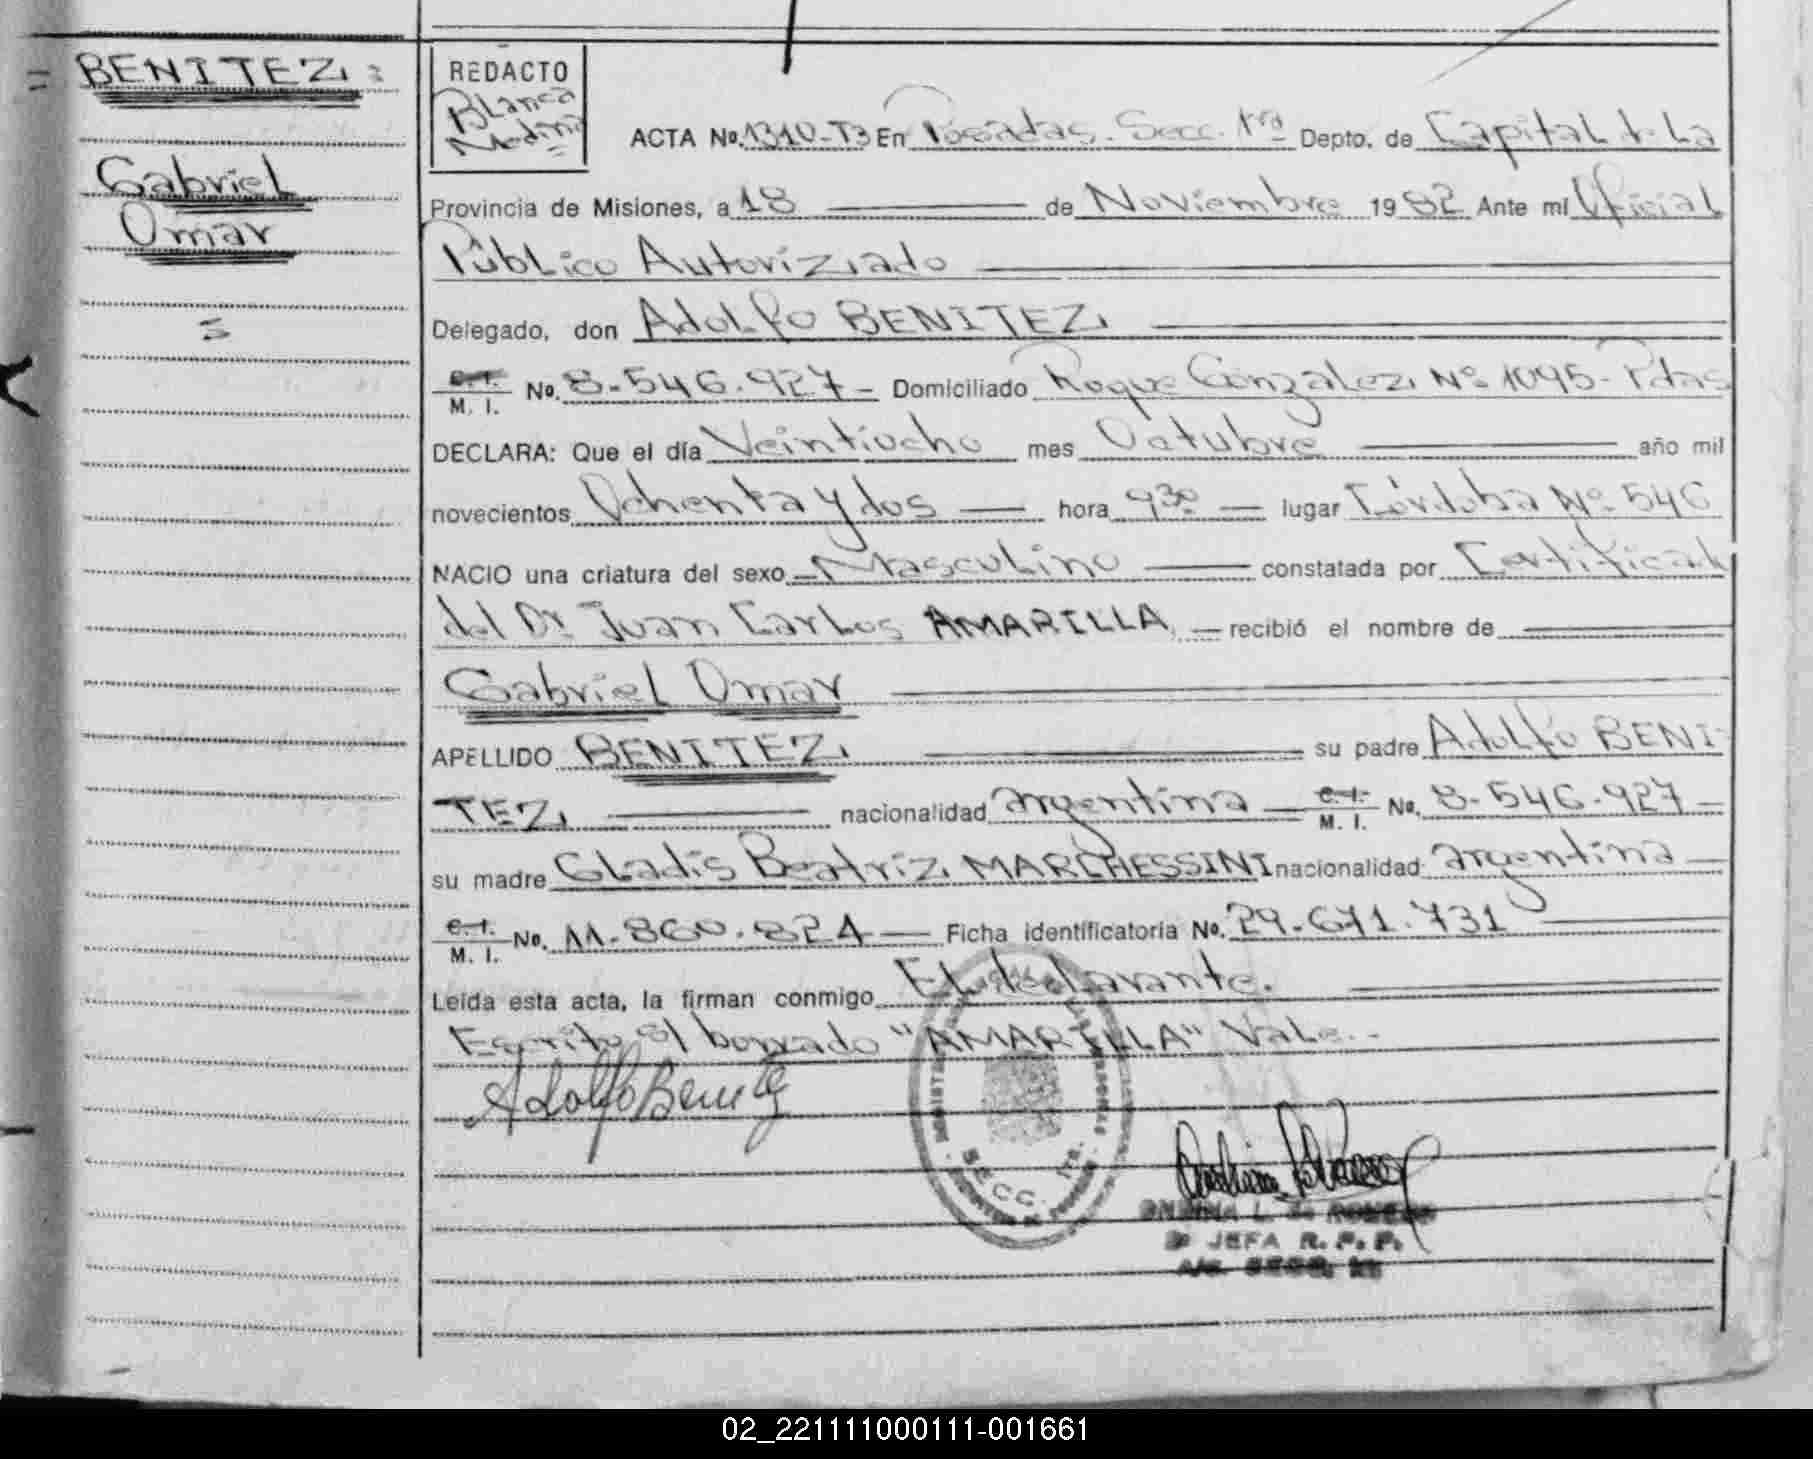 = BENITEZ =
Gabriel
Omar
=
REDACTO
Blanca
Medina
ACTA No. 1310-T3 En Posadas. Secc. 1ra Depto. de Capital de La
Provincia de Misiones, a 18 de Noviembre 1982 Ante mi Oficial
Público Autorizado
Delegado, don Adolfo BENITEZ
C.I. M. I. No. 8-546.927- Domiciliado Roque Gonzalez Nº 1095- Pdas
DECLARA: Que el día Veintiocho mes Octubre año mil
novecientos Ochenta y dos hora 9 30 lugar Córdoba Nº 546
NACIO una criatura del sexo Masculino constatada por Certificad
del Dr Juan Carlos AMARILLA recibió el nombre de
Gabriel Omar
APELLIDO BENITEZ su padre Adolfo BENI-
TEZ nacionalidad argentina C.I. M. I. No. 8-546-927-
su madre Gladis Beatriz MARCHESSINI nacionalidad argentina
C.I. M. I. No. 11-860.824 Ficha identificatoria No. 29-671.731
Leída esta acta, la firman conmigo El declarante.
Escrito s/ borrado "AMARILLA" Vale.-
Adolfo Benitez
SECC. 1ra.
ONDINA L. de ROMERO
JEFA R. P. P.
SECC.
02_221111000111-001661